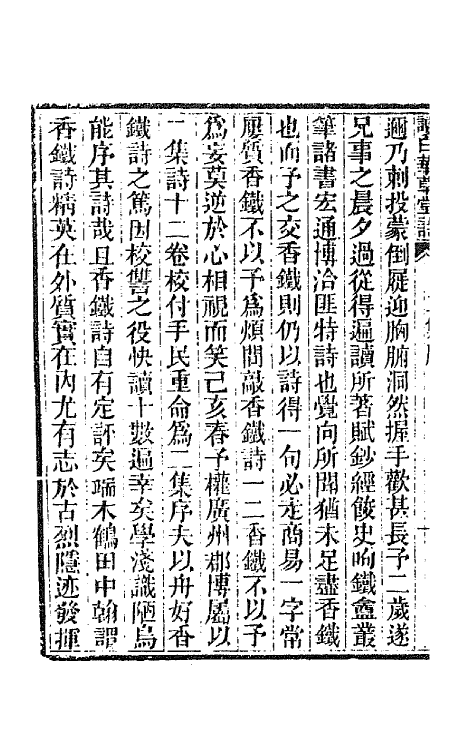 讀白華草堂詩
邇乃刺投蒙倒屣迎胸腑洞然握手歡甚長予二歲遂
兄事之晨夕過從得遍讀所著賦鈔經餕史响鐵盦叢
筆諸書宏通博洽匪特詩也覺向所聞猶未足盡香鐵
也而予之交香鐵則仍以詩得一句必走商易一字常
屢質香鐵不以予爲煩間敲香鐵詩一二香鐵不以予
爲妄莫逆於心相視而笑己亥春予權廣州郡博屬以
二集詩十二卷校付手民重命爲二集序夫以舟好香
鐵詩之篤因校讐之役快讀十數遍幸矣學淺識陋烏
能序其詩哉且香鐵詩自有定評矣端木鶴田中翰謂
香鐵詩精英在外質實在內尤有志於古烈隱迹發揮